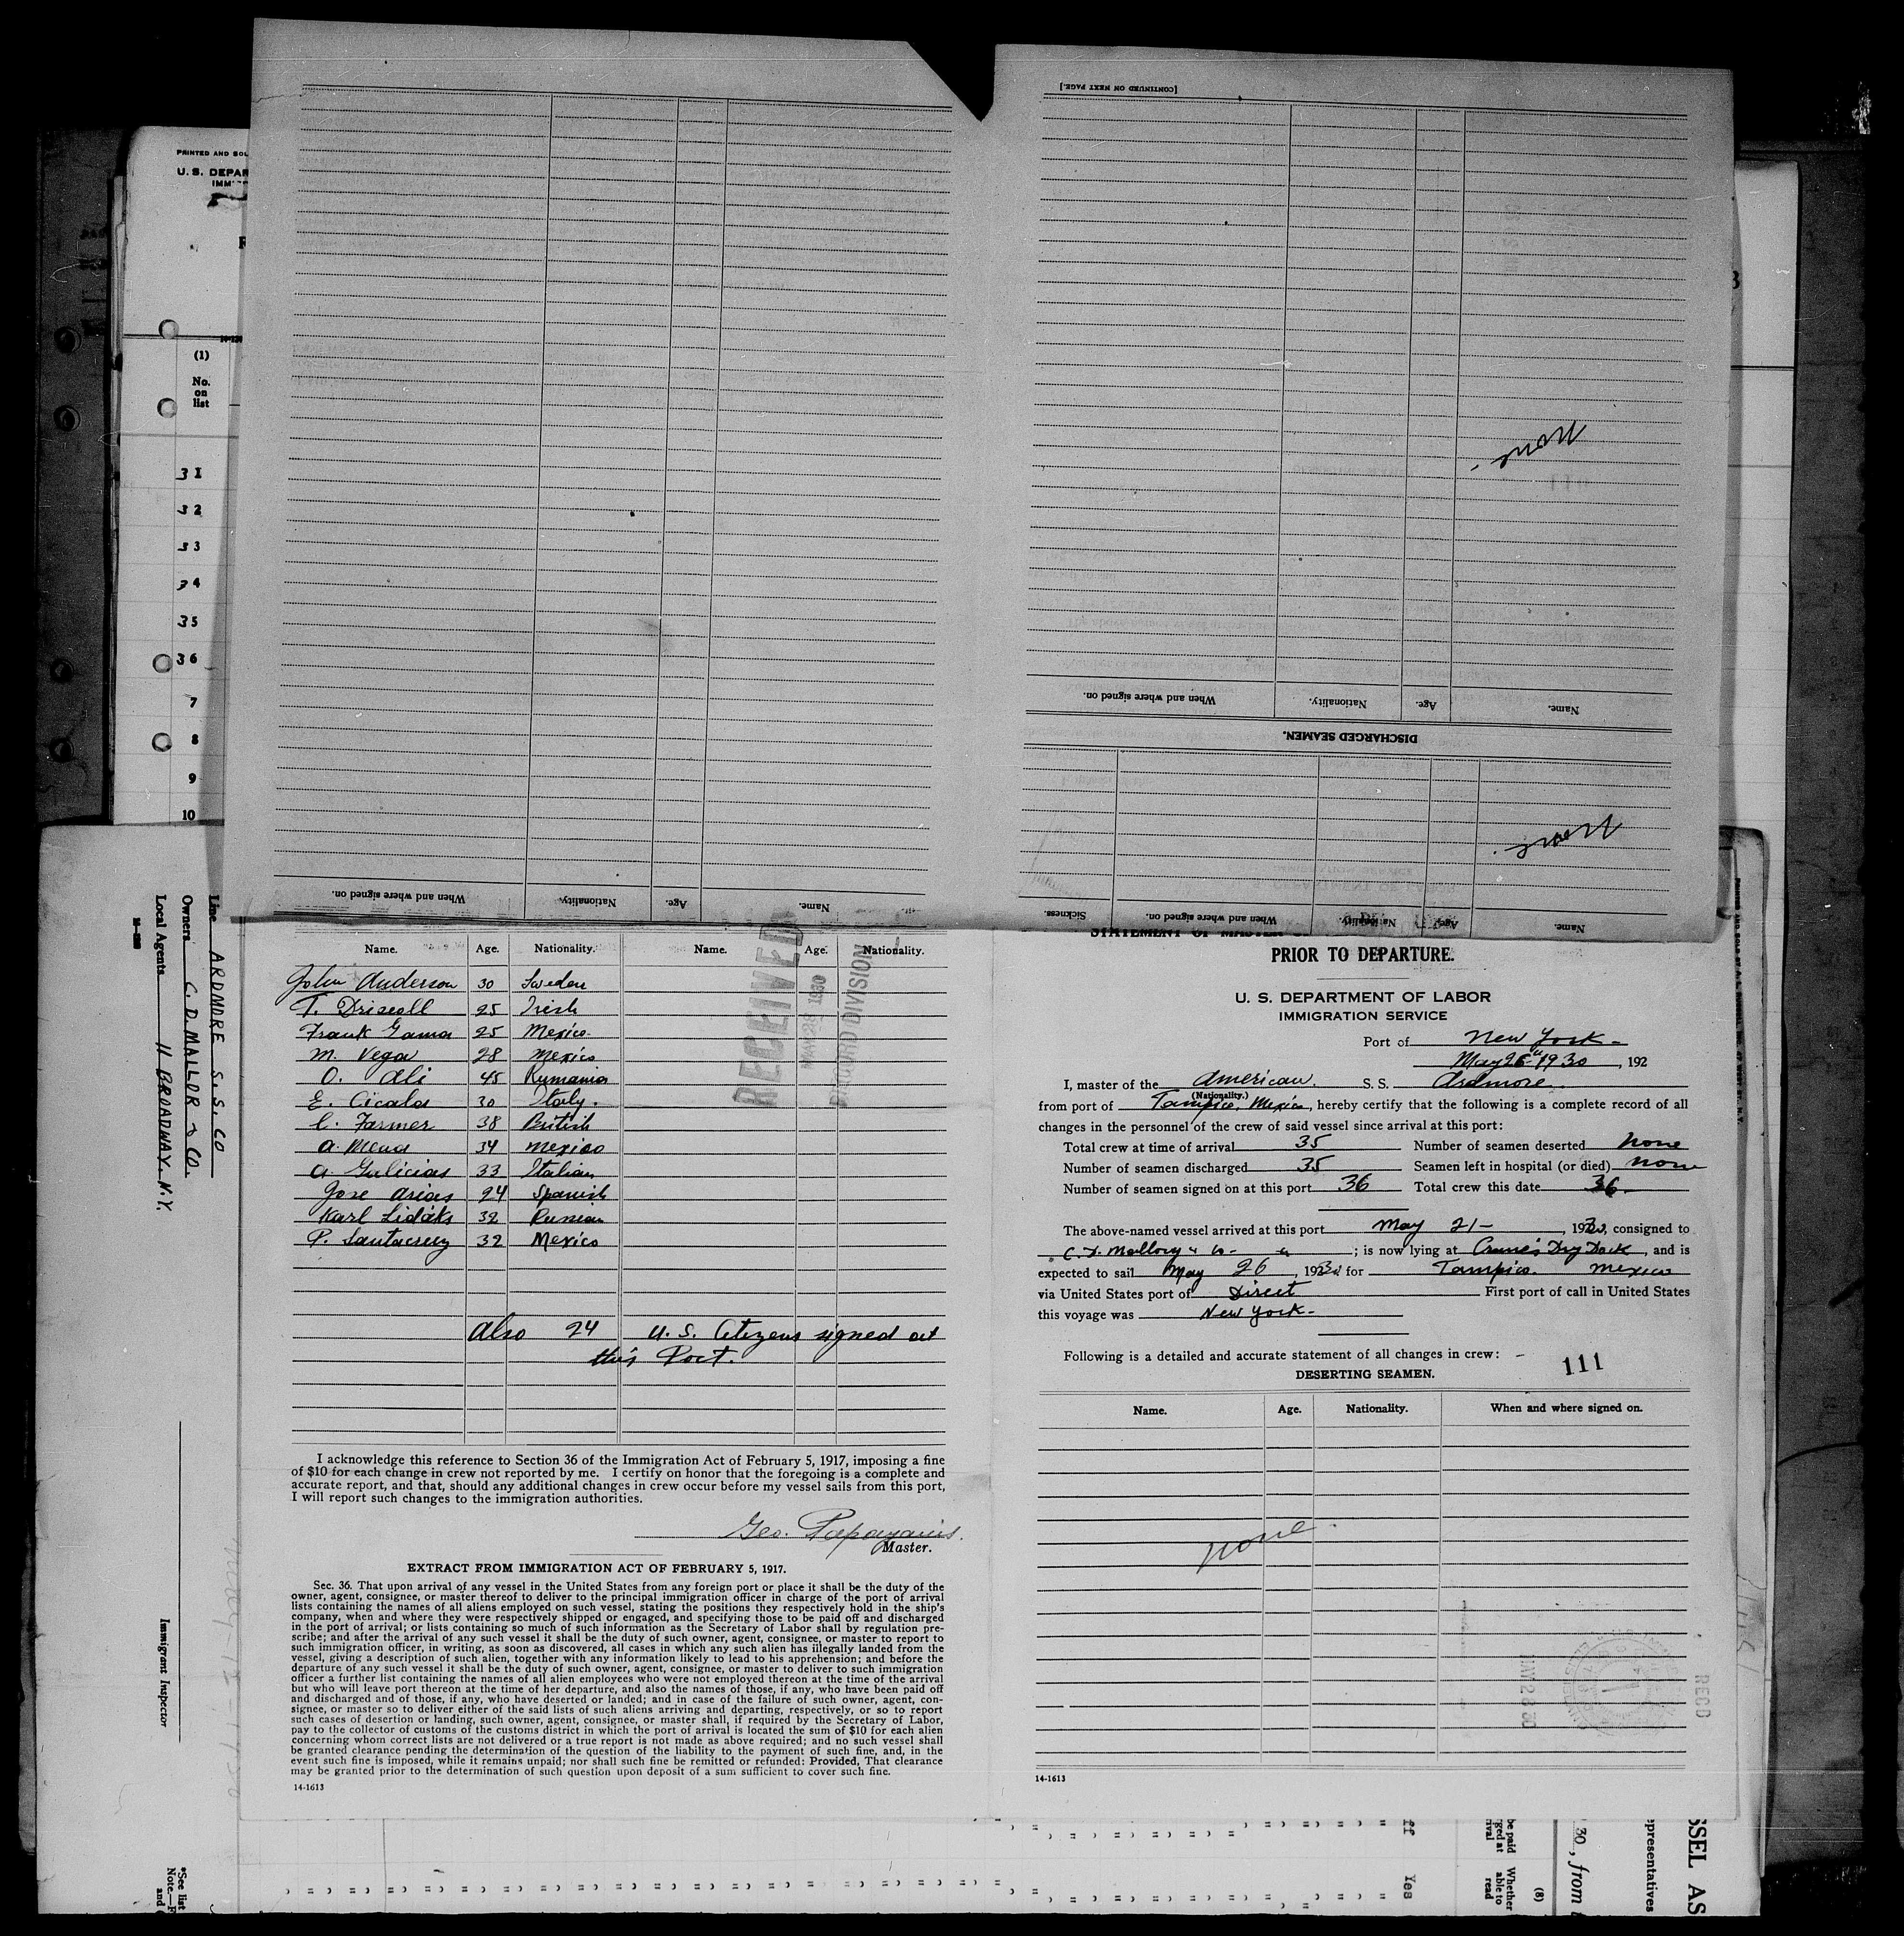 [CONTINUED ON NEXT PAGE.]
None.
When and where signed on. Nationality. Age. Name.
DISCHARGED SEAMEN.
None.
Sickness. When and where signed on. Nationality. Age. Name.
When and where signed on. Nationality. Age. Name.
PRINTED AND SOL
U. S. DEPAR
(1)
No.
on
list
31
32
33
34
35
36
7
8
9
10
Line ARDMORE S. S. CO
Owners C. D. MALLOR & CO.
Local Agents 11 BROADWAY N.Y.
Immigrant Inspector
*See list
Note.—F
and
Name. Age. Nationality. Name. Age. Nationality.
John Anderson 30 Sweden
T. Driscoll 25 Irish
Frank Gama 25 Mexico
M. Vega 28 Mexico
O. Ali 45 Rumania
E. Cicala 30 Italy.
C. Farmer 38 British
A. Mena 34 Mexico
A. Galicias 33 Italian
Jose Arias 24 Spanish
Karl Lidaks 32 Russian
P. Santacruz 32 Mexico
RECEIVED
MAY 28 1930
RECORD DIVISION
Also 24 U. S. Citizens signed at
this Port.
I acknowledge this reference to Section 36 of the Immigration Act of February 5, 1917, imposing a fine
of $10 for each change in crew not reported by me. I certify on honor that the foregoing is a complete and
accurate report, and that, should any additional changes in crew occur before my vessel sails from this port,
I will report such changes to the immigration authorities.
Geo. Papazanis.
Master.
EXTRACT FROM IMMIGRATION ACT OF FEBRUARY 5, 1917.
Sec. 36. That upon arrival of any vessel in the United States from any foreign port or place it shall be the duty of the
owner, agent, consignee, or master thereof to deliver to the principal immigration officer in charge of the port of arrival
lists containing the names of all aliens employed on such vessel, stating the positions they respectively hold in the ship's
company, when and where they were respectively shipped or engaged, and specifying those to be paid off and discharged
in the port of arrival; or lists containing so much of such information as the Secretary of Labor shall by regulation pre-
scribe; and after the arrival of any such vessel it shall be the duty of such owner, agent, consignee, or master to report to
such immigration officer, in writing, as soon as discovered, all cases in which any such alien has illegally landed from the
vessel, giving a description of such alien, together with any information likely to lead to his apprehension; and before the
departure of any such vessel it shall be the duty of such owner, agent, consignee, or master to deliver to such immigration
officer a further list containing the names of all alien employees who were not employed thereon at the time of the arrival
but who will leave port thereon at the time of her departure, and also the names of those, if any, who have been paid off
and discharged and of those, if any, who have deserted or landed; and in case of the failure of such owner, agent, con-
signee, or master so to deliver either of the said lists of such aliens arriving and departing, respectively, or so to report
such cases of desertion or landing, such owner, agent, consignee, or master shall, if required by the Secretary of Labor,
pay to the collector of customs of the customs district in which the port of arrival is located the sum of $10 for each alien
concerning whom correct lists are not delivered or a true report is not made as above required; and no such vessel shall
be granted clearance pending the determination of the question of the liability to the payment of such fine, and, in the
event such fine is imposed, while it remains unpaid; nor shall such fine be remitted or refunded: Provided, That clearance
may be granted prior to the determination of such question upon deposit of a sum sufficient to cover such fine.
14-1613
STATEMENT OF MASTER
PRIOR TO DEPARTURE.
U. S. DEPARTMENT OF LABOR
IMMIGRATION SERVICE
Port of New York-
May 26 1930, 192
I, master of the American. S. S. Ardmore
(Nationality.)
from port of Tampico, Mexico, hereby certify that the following is a complete record of all
changes in the personnel of the crew of said vessel since arrival at this port:
Total crew at time of arrival 35 Number of seamen deserted None
Number of seamen discharged 35 Seamen left in hospital (or died) None
Number of seamen signed on at this port 36 Total crew this date 36
The above-named vessel arrived at this port May 21-, 1930, consigned to
C. D. Mallory & Co-; is now lying at Crane's Dry Dock, and is
expected to sail May 26, 1930 for Tampico. Mexico
via United States port of Direct First port of call in United States
this voyage was New York-
Following is a detailed and accurate statement of all changes in crew: -
111
DESERTING SEAMEN.
Name. Age. Nationality. When and where signed on.
None.
MAY 28 30
RECD
14-1613
ff Yes
be paid
ged at
ival
Whether
able to
read
(8)
30, from
presentatives
SSEL AS